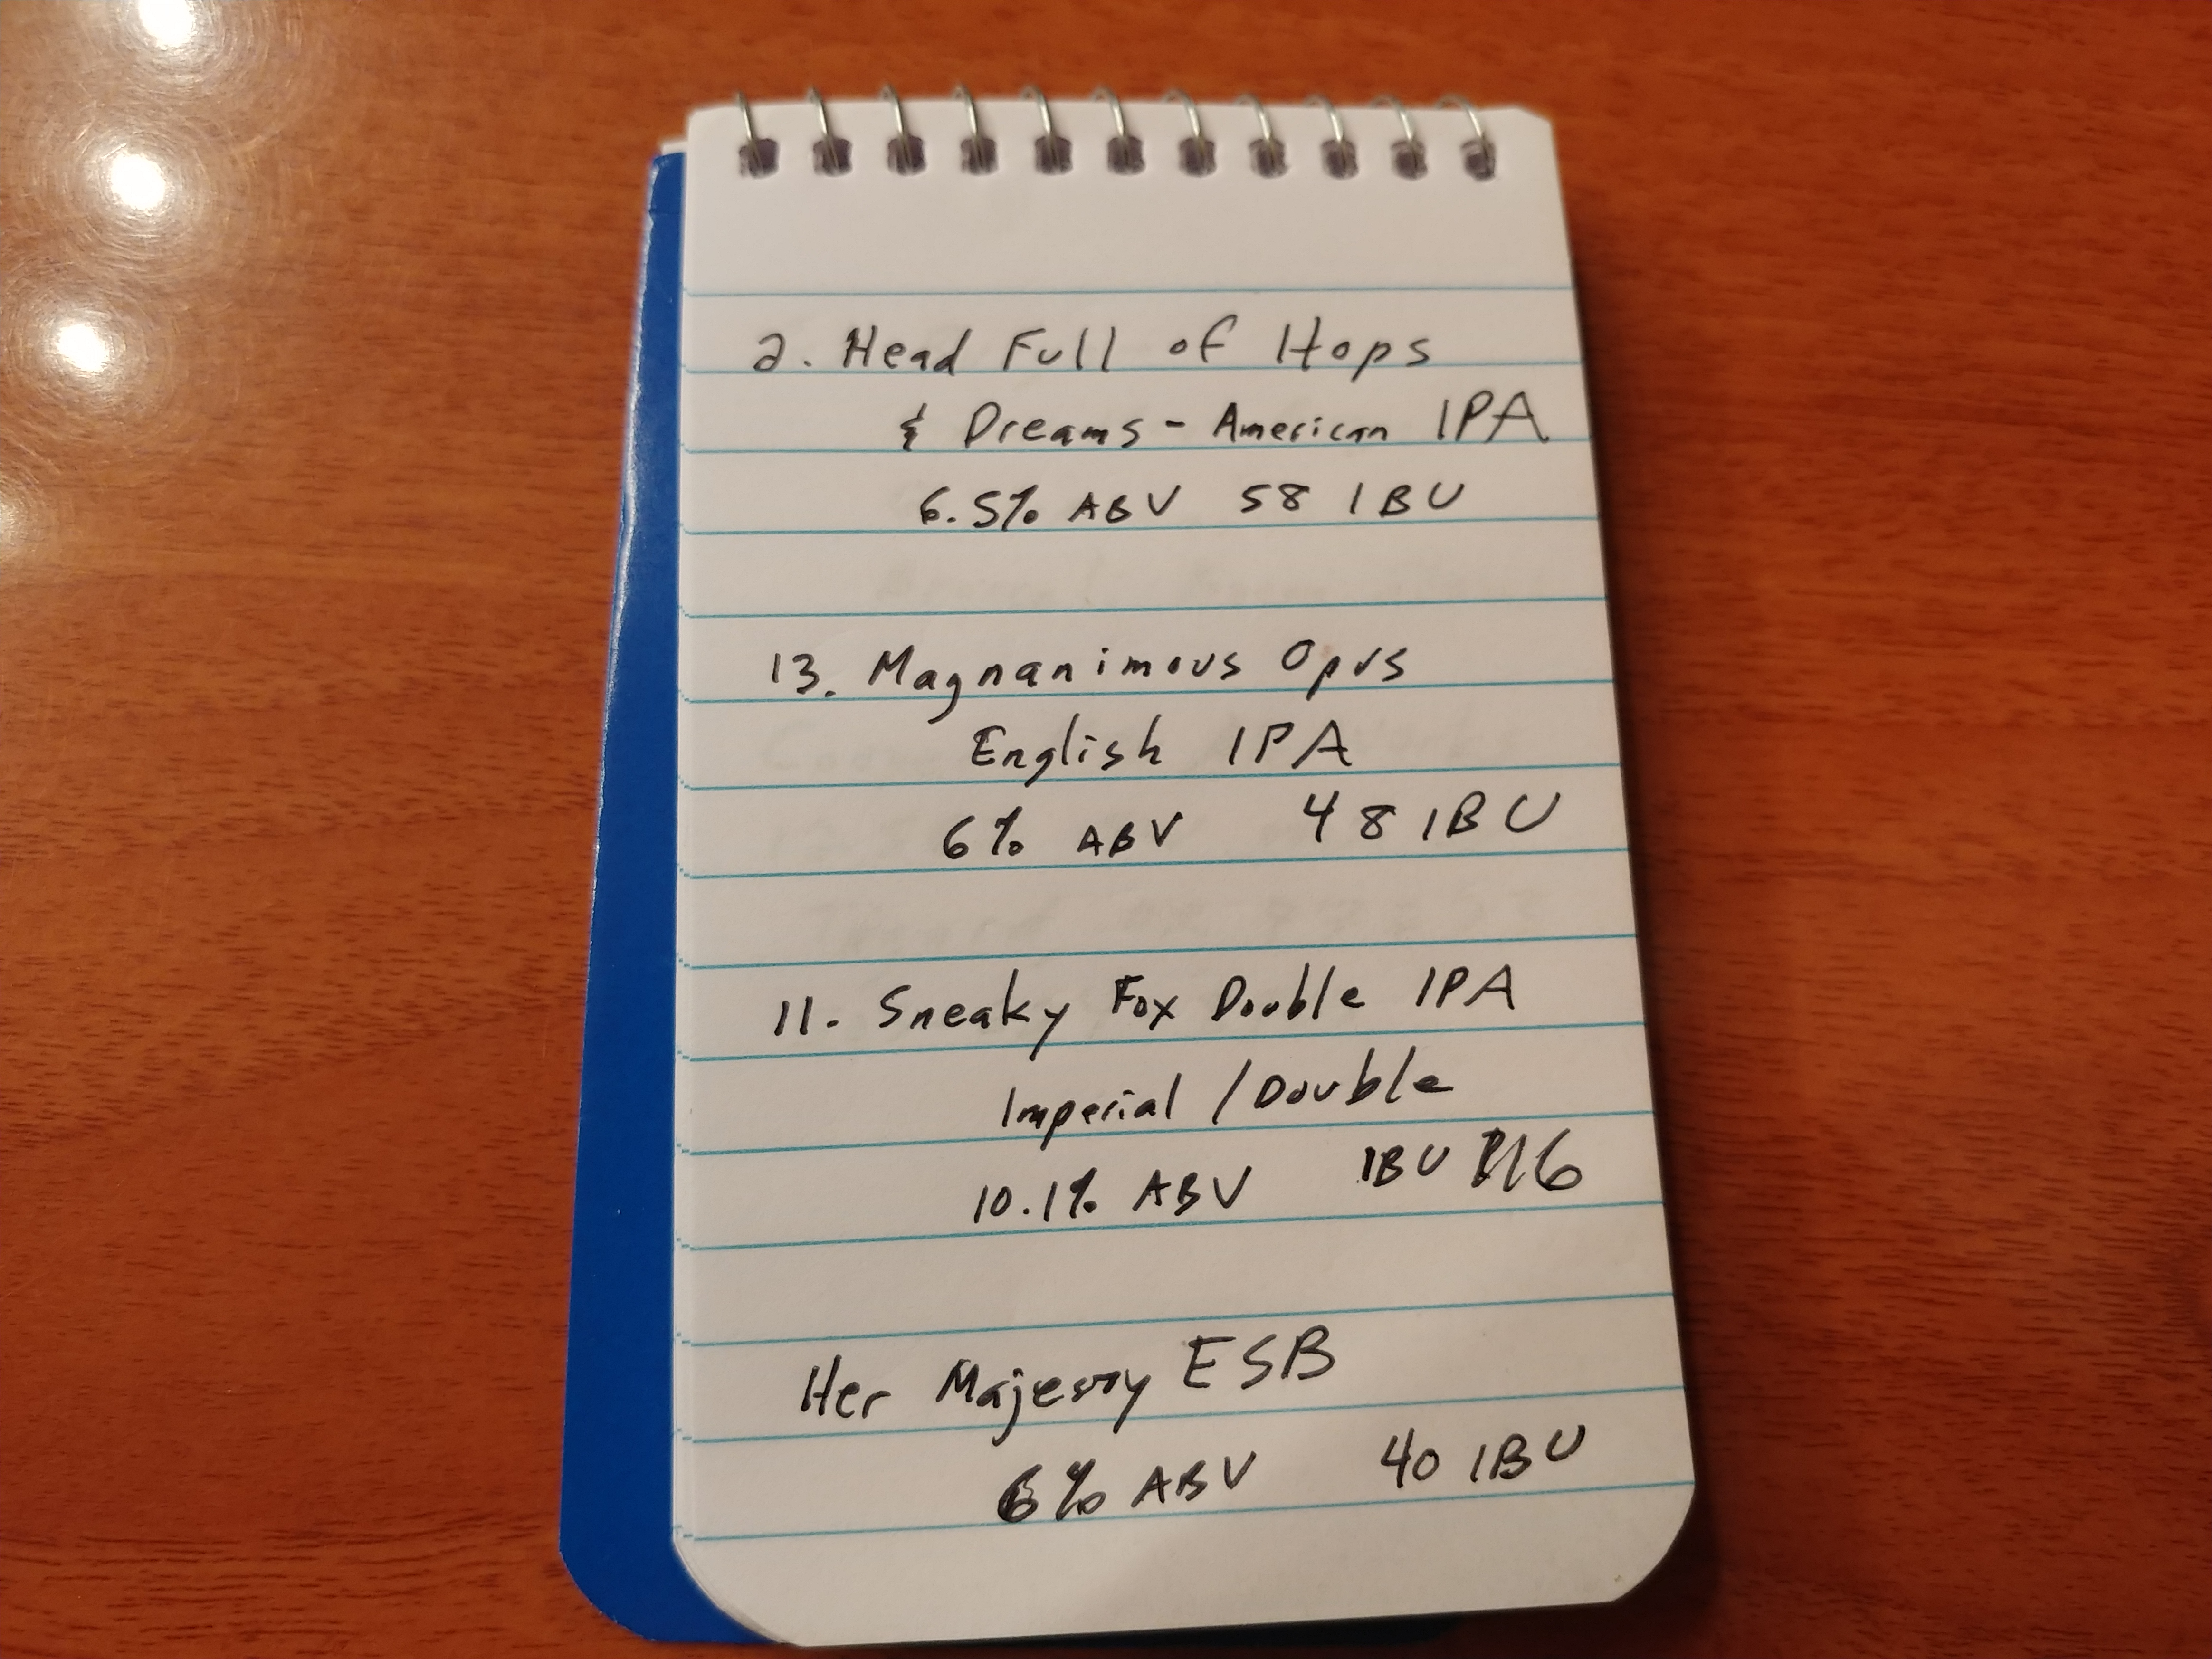 2. Head Full of Hops
& Dreams - American IPA
6.5% ABV 58 IBU
13. Magnanimous Opus
English IPA
6% ABV 48 IBU
11. Sneaky Fox Double IPA
Imperial / Double
10.1% ABV IBU 116
Her Majesty ESB
6% ABV 40 IBU